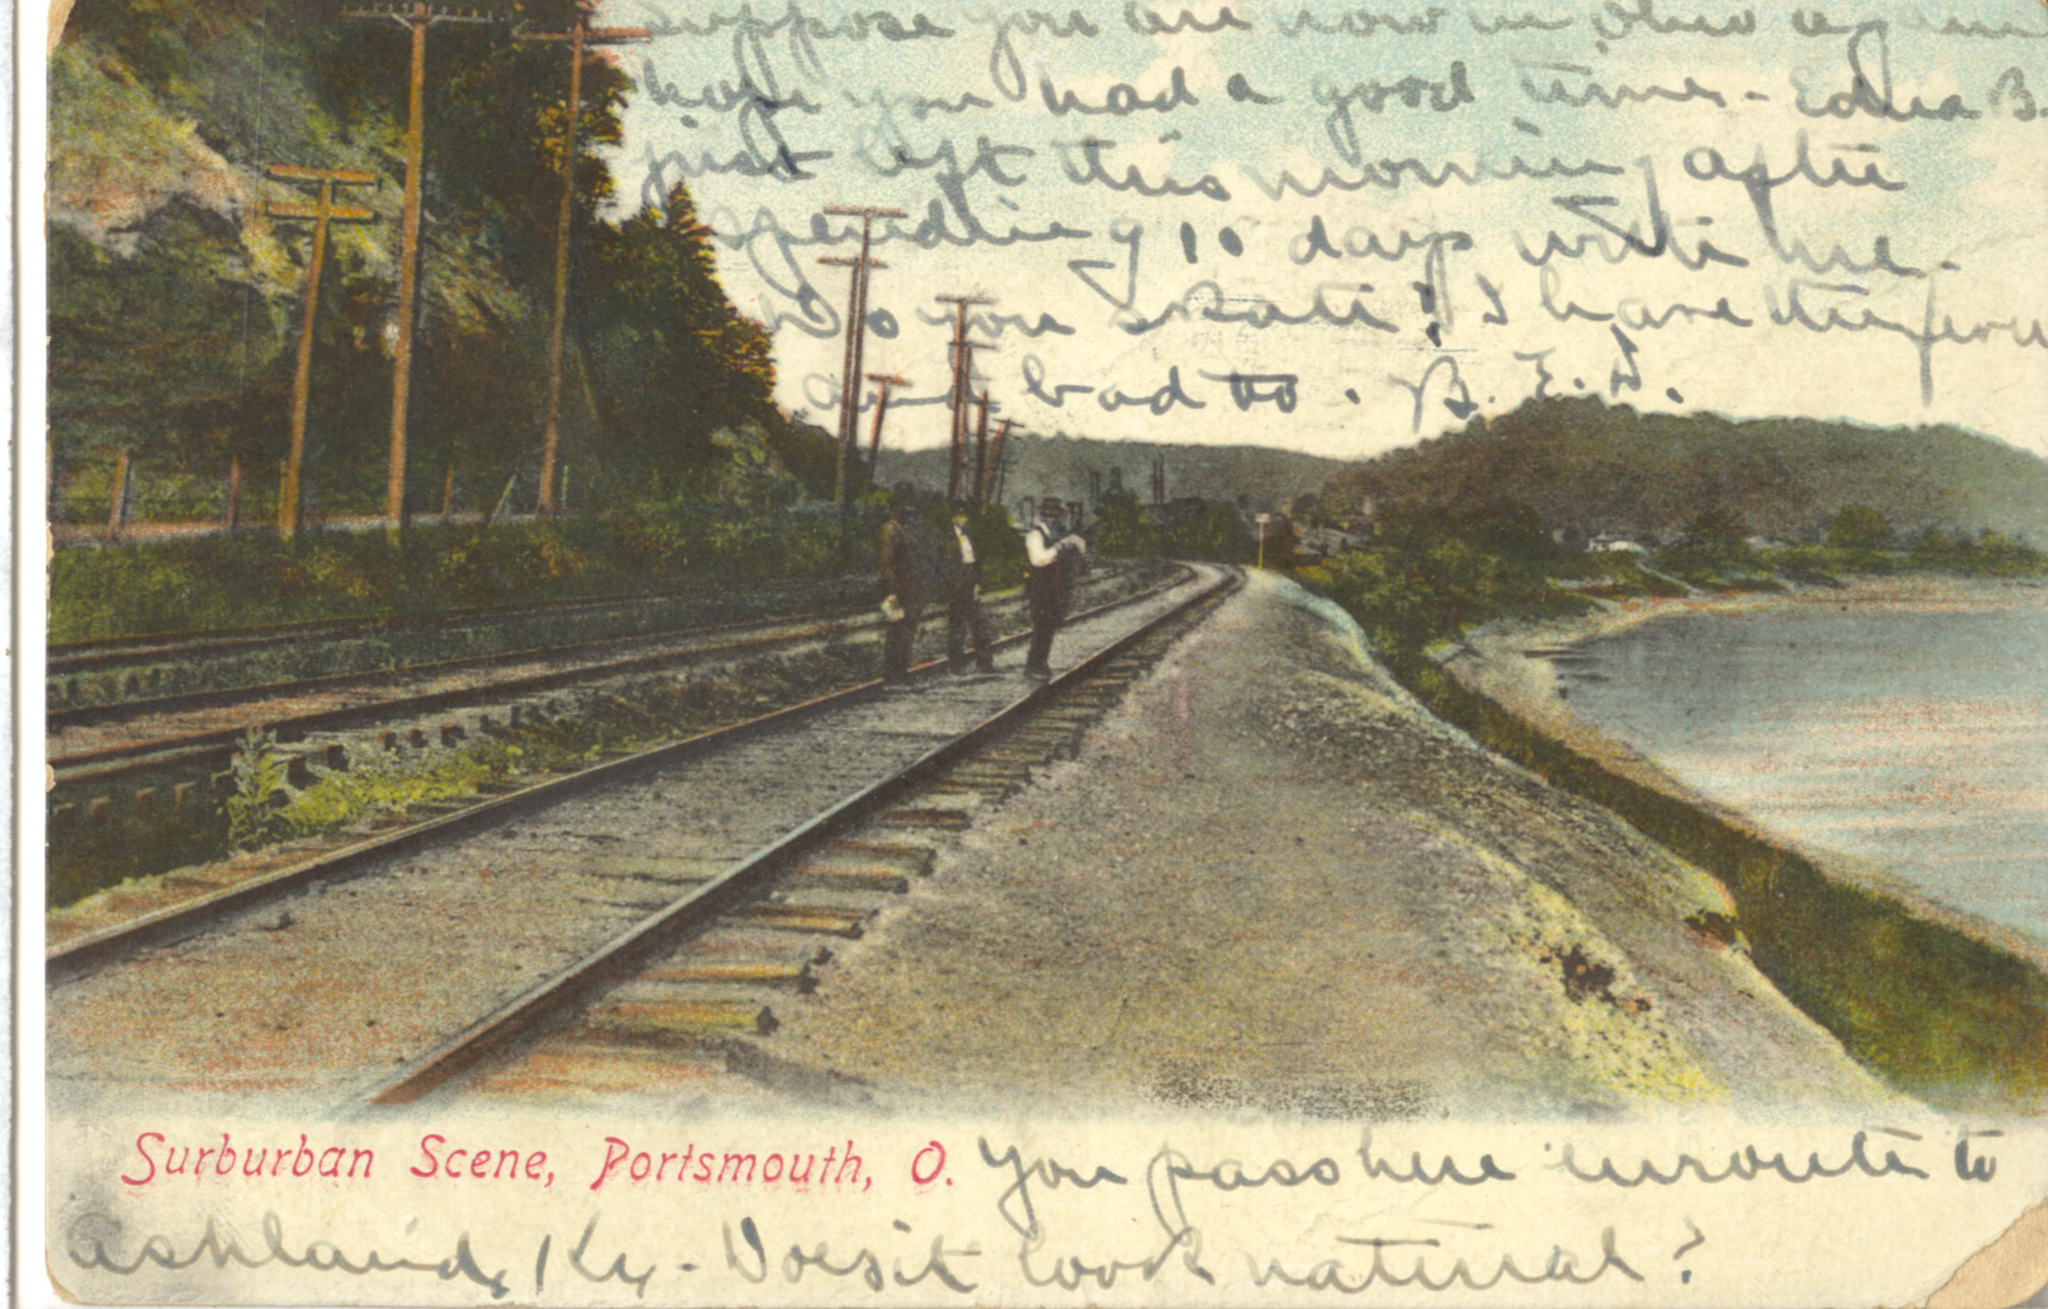 suppose you are now in Ohio again
hope you had a good time - Edna B.
just left this morning after
spending 10 days with me.
do you skate? I have the fever
and bad to. B. E. D.
Surburban Scene, Portsmouth, O. You pass here enroute to
Ashland, Ky. - Doesn't look natural?